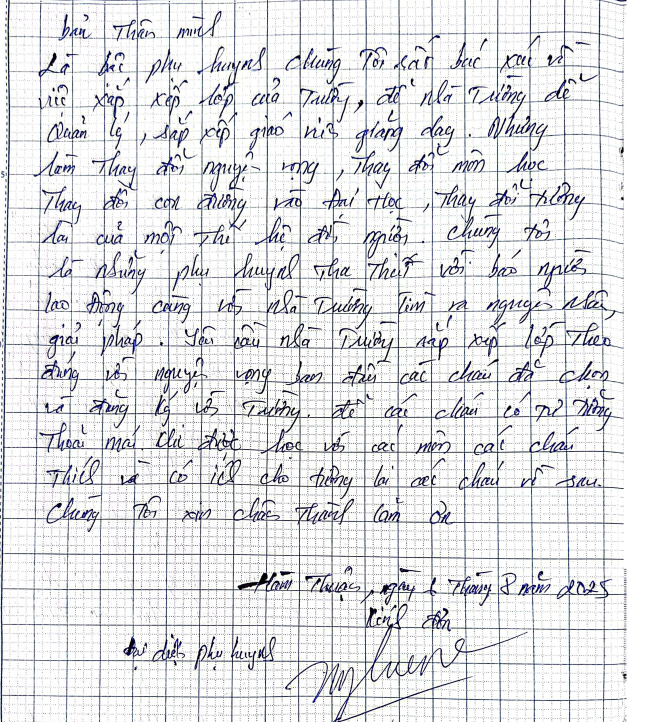 bản Thân mình
Là bậc phụ huynh chúng Tôi rất bức xúc về
việc xắp xếp lớp của Trường, để nhà Trường dễ
Quản lý, sắp xếp giáo viên giảng dạy. Nhưng
làm Thay đổi nguyện vọng, Thay đổi môn học
Thay đổi con đường vào Đại Học, Thay đổi tương
lai của một Thế hệ đời người. Chúng tôi
là những phụ huynh Tha Thiết với báo người
lao Động, cùng với nhà Trường Tìm ra nguyên nhân,
giải pháp. Yêu cầu nhà Trường sắp xếp lớp Theo
đúng với nguyện vọng ban đầu các cháu đã chọn
và đăng ký với Trường. để các cháu có tư tưởng
Thoải mái khi được học với các môn các cháu
Thích và có ích cho tương lai các cháu về sau.
Chúng Tôi xin chân Thành cảm ơn
Hàm Thuận, ngày 6 Tháng 8 năm 2025
Kính đơn
Đại diện phụ huynh